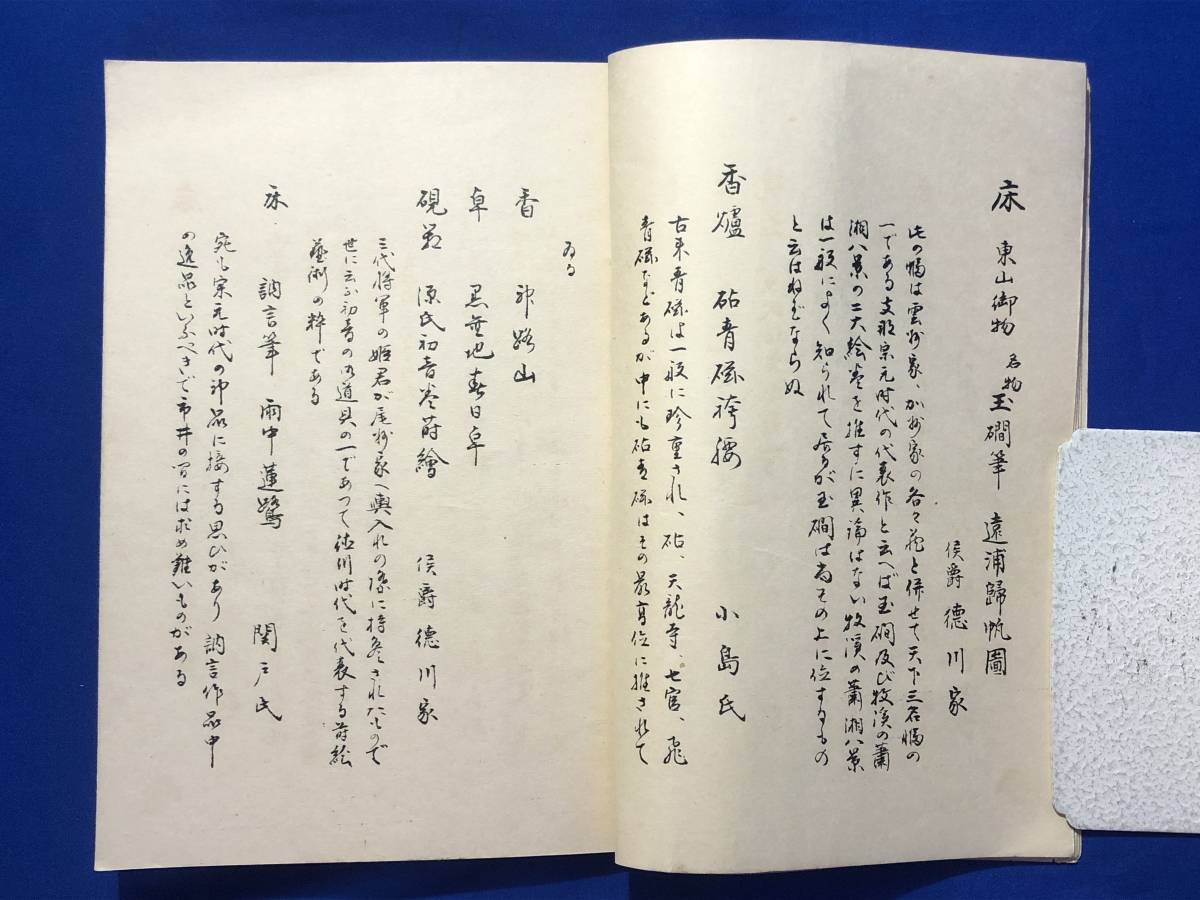 床 東山御物 名物 玉磵筆 遠浦歸帆圖
侯爵 徳川家
此の幅は雲州家、加州家の各々花と併せて天下三名幅の
一である支那宗元时代の代表作と云へば玉磵及び牧溪の蕭
湘八景の二大絵巻を推すに異論はない牧溪の蕭湘八景
は一般によく知られて居るが玉磵は尚その上に位するもの
と云はねばならぬ
香爐 砧青磁袴腰 小島氏
古来青磁は一般に珍重され、砧、天龍寺、七官、飛
青磁などあるが中にも砧青磁はその最高位に推されて
ゐる
香 神路山
卓 黒無地春日卓
硯箱 源氏初音巻蒔繪 侯爵徳川家
三代将軍の姫君が尾州家へ輿入れの際に持参されたもので
世に云ふ初音の御道具の一であつて徳川时代を代表する蒔絵
藝術の粋である
床 訥言筆 雨中蓮鷺 関戸氏
宛も宋元时代の神品に接する思ひがあり 訥言作品中
の逸品といふべきで市井の間には求め難いものがある